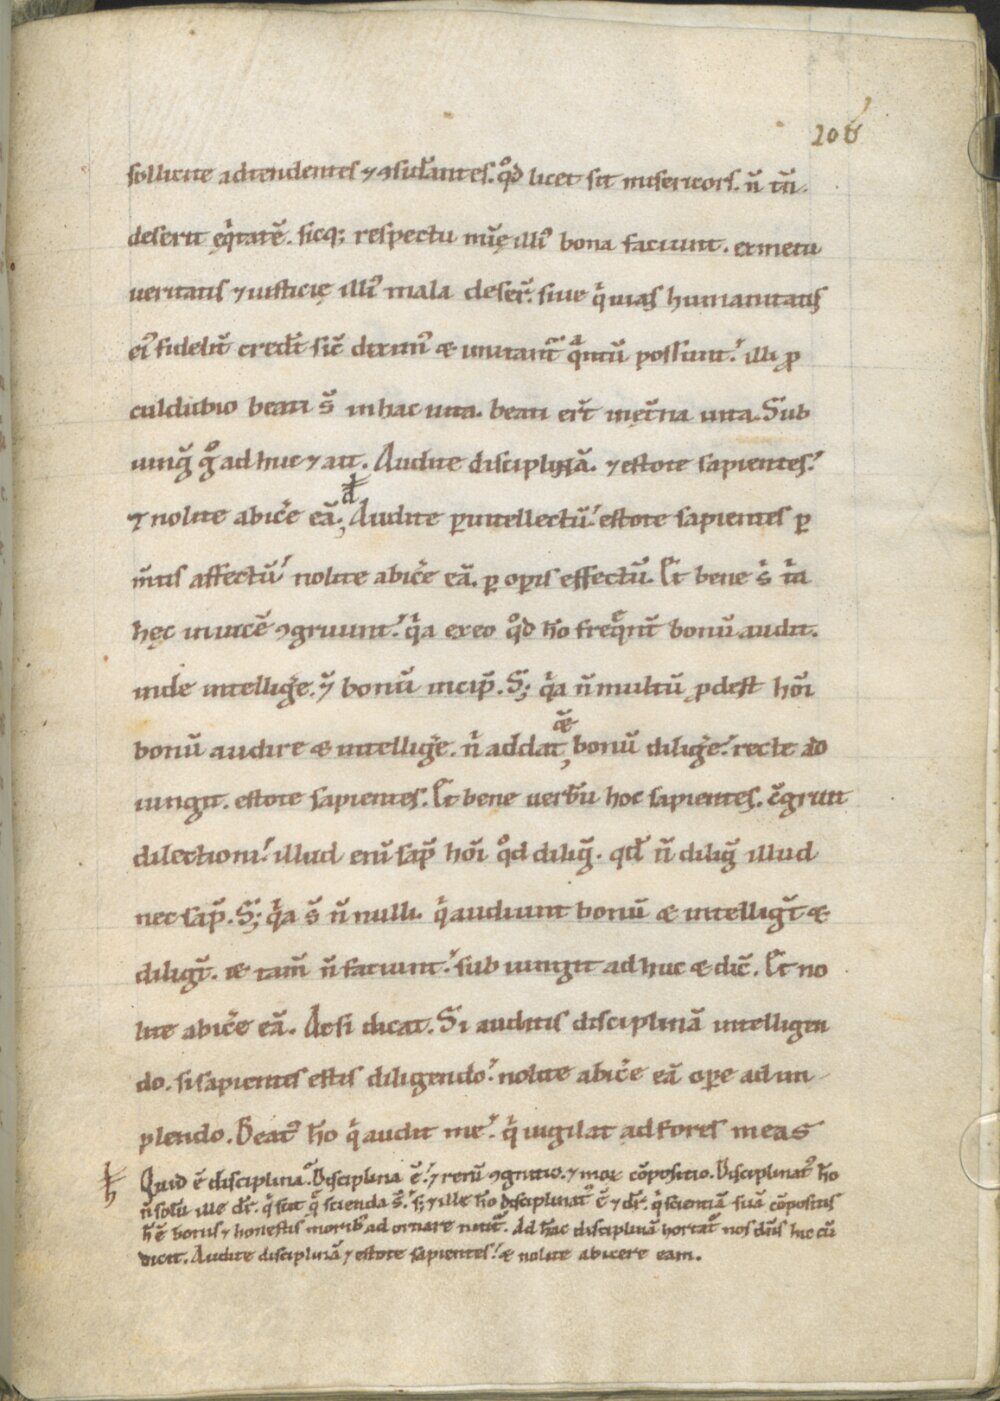 208
sollicite adtendentes ⁊ ꝯsid̄antes. qd̊ licet sit misericors. n̄ tm̄
deserit ęq̇tatē. sicq; respectu mı̄ę illiꝰ bona faciunt. ex metu
ueritatis ⁊ iusticię illiꝰ mala deser̄t. siue q̇ uias humanitatis
eiꝰ fidelit̄ cred̄t sic̄ diximꝰ & imitant᷑ q̈ntū possunt. illi ꝓ
culdubio beati s̄ in hac uita. beati er̄t in ęt̄na uita. Sub
iunḡ g̊ ad huc ⁊ ait. Audite disciplinā. ⁊ estote sapientes.
⁊ nolite abic̄e eā. Audite ꝑ intellectū. estote sapientes ꝑ
m̄tis affectū. nolite abic̄e eā. ꝑ oꝑis effectū. Et bene s̄ ita
hęc inuicē ꝯgruunt. q̇a ex eo qd̊ hō freq̄nt̄ bonū audit.
inde intelliḡe. ⁊ bonū incip̄. S; q̇a n̄ multū ꝓdest hōi
bonū audire & intelliḡe. n̄ addat & bonū diliḡe. recte ad
iungit. estote sapientes. Et bene uerbū hoc sapientes. c̄gruit
dilectioni. illud enī sap̄ hōi qd̊ diliḡ. qd̄ n̄ diliḡ illud
nec sap̄. S; q̇a s̄ n̄nulli. q̇ audiunt bonū & intelliḡt &
diliḡt. & tam̄ n̄ faciunt. sub iungit ad huc & dic̄. Et no
lite abic̄e eā. Ac si dicat. Si auditis disciplinā intelligen
do. si sapientes estis diligendo. nolite abic̄e eā oꝑe ad im
plendo. Beatꝰ hō q̇ audit me. q̇ uigilat ad fores meas
Quid ē disciplina. Disciplina ē. ⁊ rerū ꝯgnitio. ⁊ moꝝ cōpositio. Disciplinatꝰ hō
n̄ solū ille dr̄. q̇ scit q̄ scienda s̄. s; ⁊ ille hō disciplinatꝰ ē ⁊ dr̄. q̇ scientiā suā cōpositis
h̄ē bonis ⁊ honestis moribꝰ ad ornare nitit᷑. Ad hāc disciplinā hortat᷑ nos dn̄s hic cū
dicit. Audite disciplinā ⁊ estote sapientes. & nolite abicere eam.